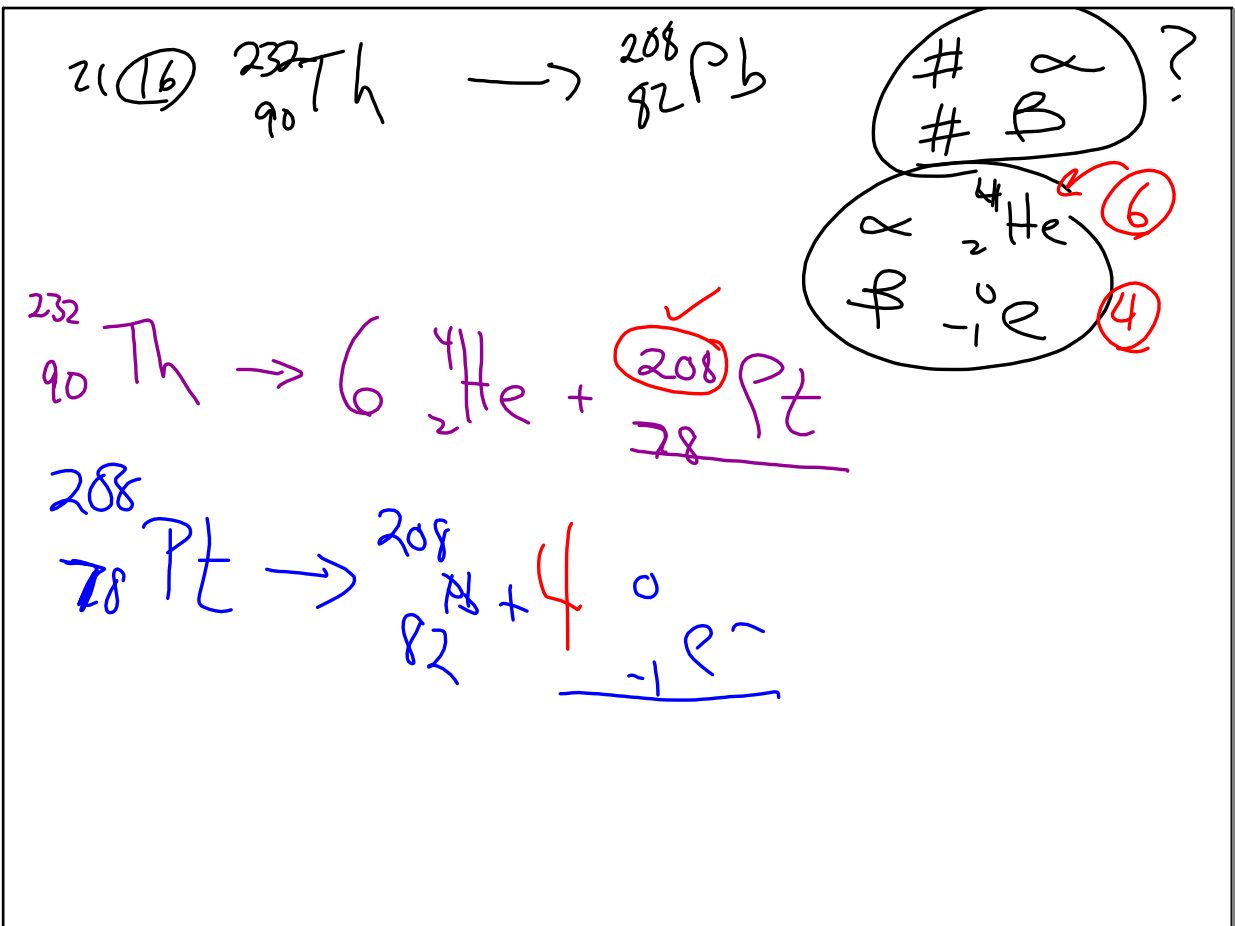 21 (16) ²³²₉₀Th → ²⁰⁸₈₂Pb # α ?
# β
α ⁴₂He 6
β ⁰₋₁e 4
²³²₉₀Th → 6 ⁴₂He + ²⁰⁸₇₈Pt ✓
²⁰⁸₇₈Pt → ²⁰⁸₈₂ + 4 ⁰₋₁e⁻